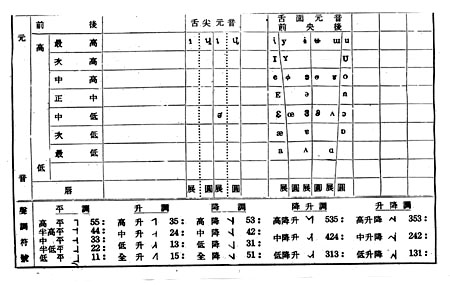 元 前 後 舌尖元音 舌面元音
前 央 後
高 最 高 ɿ ʮ ʅ ʯ i y ɨ ʉ ɯ u
次 高 I Y U
中 高 e ø ɘ ɵ ɤ o
正 中 E ə
中 低 ɛ œ ʌ ɔ
次 低 æ ɐ
低 最 低 a ɑ
音 唇 展 圓 展 圓 展 圓 展 圓 展 圓
聲調符號 平 調 升 調 降 調 降升 調 升降 調
高平 ˥ 55: 高升 35: 高降 53: 高降升 535: 高升降 353:
半高平 44: 中升 24: 中降 42: 中降升 424: 中升降 242:
中平 33: 低升 13: 低降 31: 低降升 313: 低升降 131:
半低平 22: 全升 15: 全降 51:
低平 11: